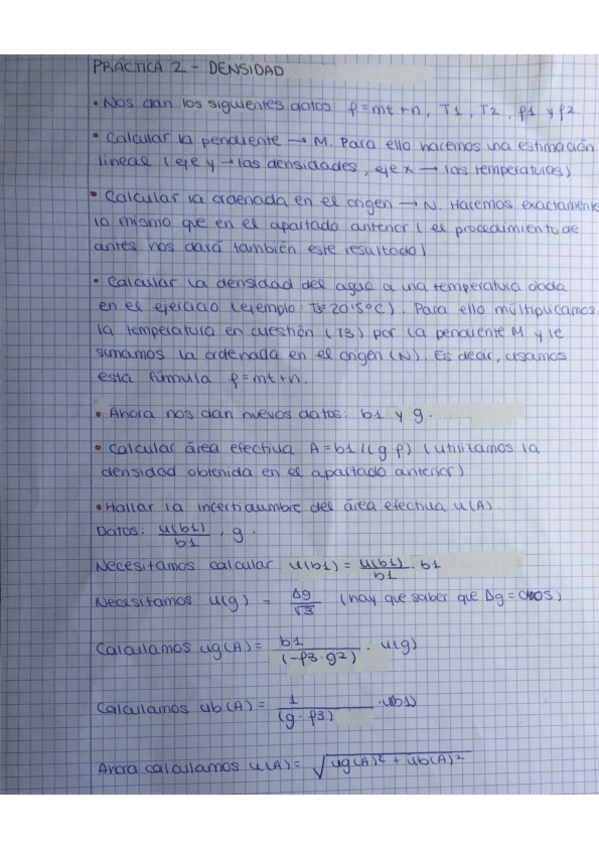 PRÁCTICA 2 - DENSIDAD
• Nos dan los siguientes datos ρ=mt+n, T1, T2, ρ1 y ρ2.
• Calcular la pendiente → M. Para ello hacemos una estimación
lineal (eje y → las densidades, eje x → las temperaturas)
• Calcular la ordenada en el origen → N. Hacemos exactamente
lo mismo que en el apartado anterior (el procedimiento de
antes nos dará también este resultado)
• Calcular la densidad del agua a una temperatura dada
en el ejercicio (ejemplo: T3=20'5ºC). Para ello múltiplicamos
la temperatura en cuestión (T3) por la pendiente M y le
sumamos la ordenada en el origen (N). Es decir, usamos
esta fórmula ρ=mt+n.
• Ahora nos dan nuevos datos: b1 y g.
• Calcular área efectiva A=b1/(g ρ) (utilizamos la
densidad obtenida en el apartado anterior)
• Hallar la incertidumbre del área efectiva u(A)
Datos: u(b1)/b1, g.
Necesitamos calcular u(b1) = u(b1)/b1 · b1
Necesitamos u(g) = Δg/√3 (hay que saber que Δg= )
Calculamos ug(A) = b1/(-ρ3·g2) · u(g)
Calculamos ub(A) = 1/(g·ρ3) · u(b1)
Ahora calculamos u(A) = √ug(A)² + ub(A)²